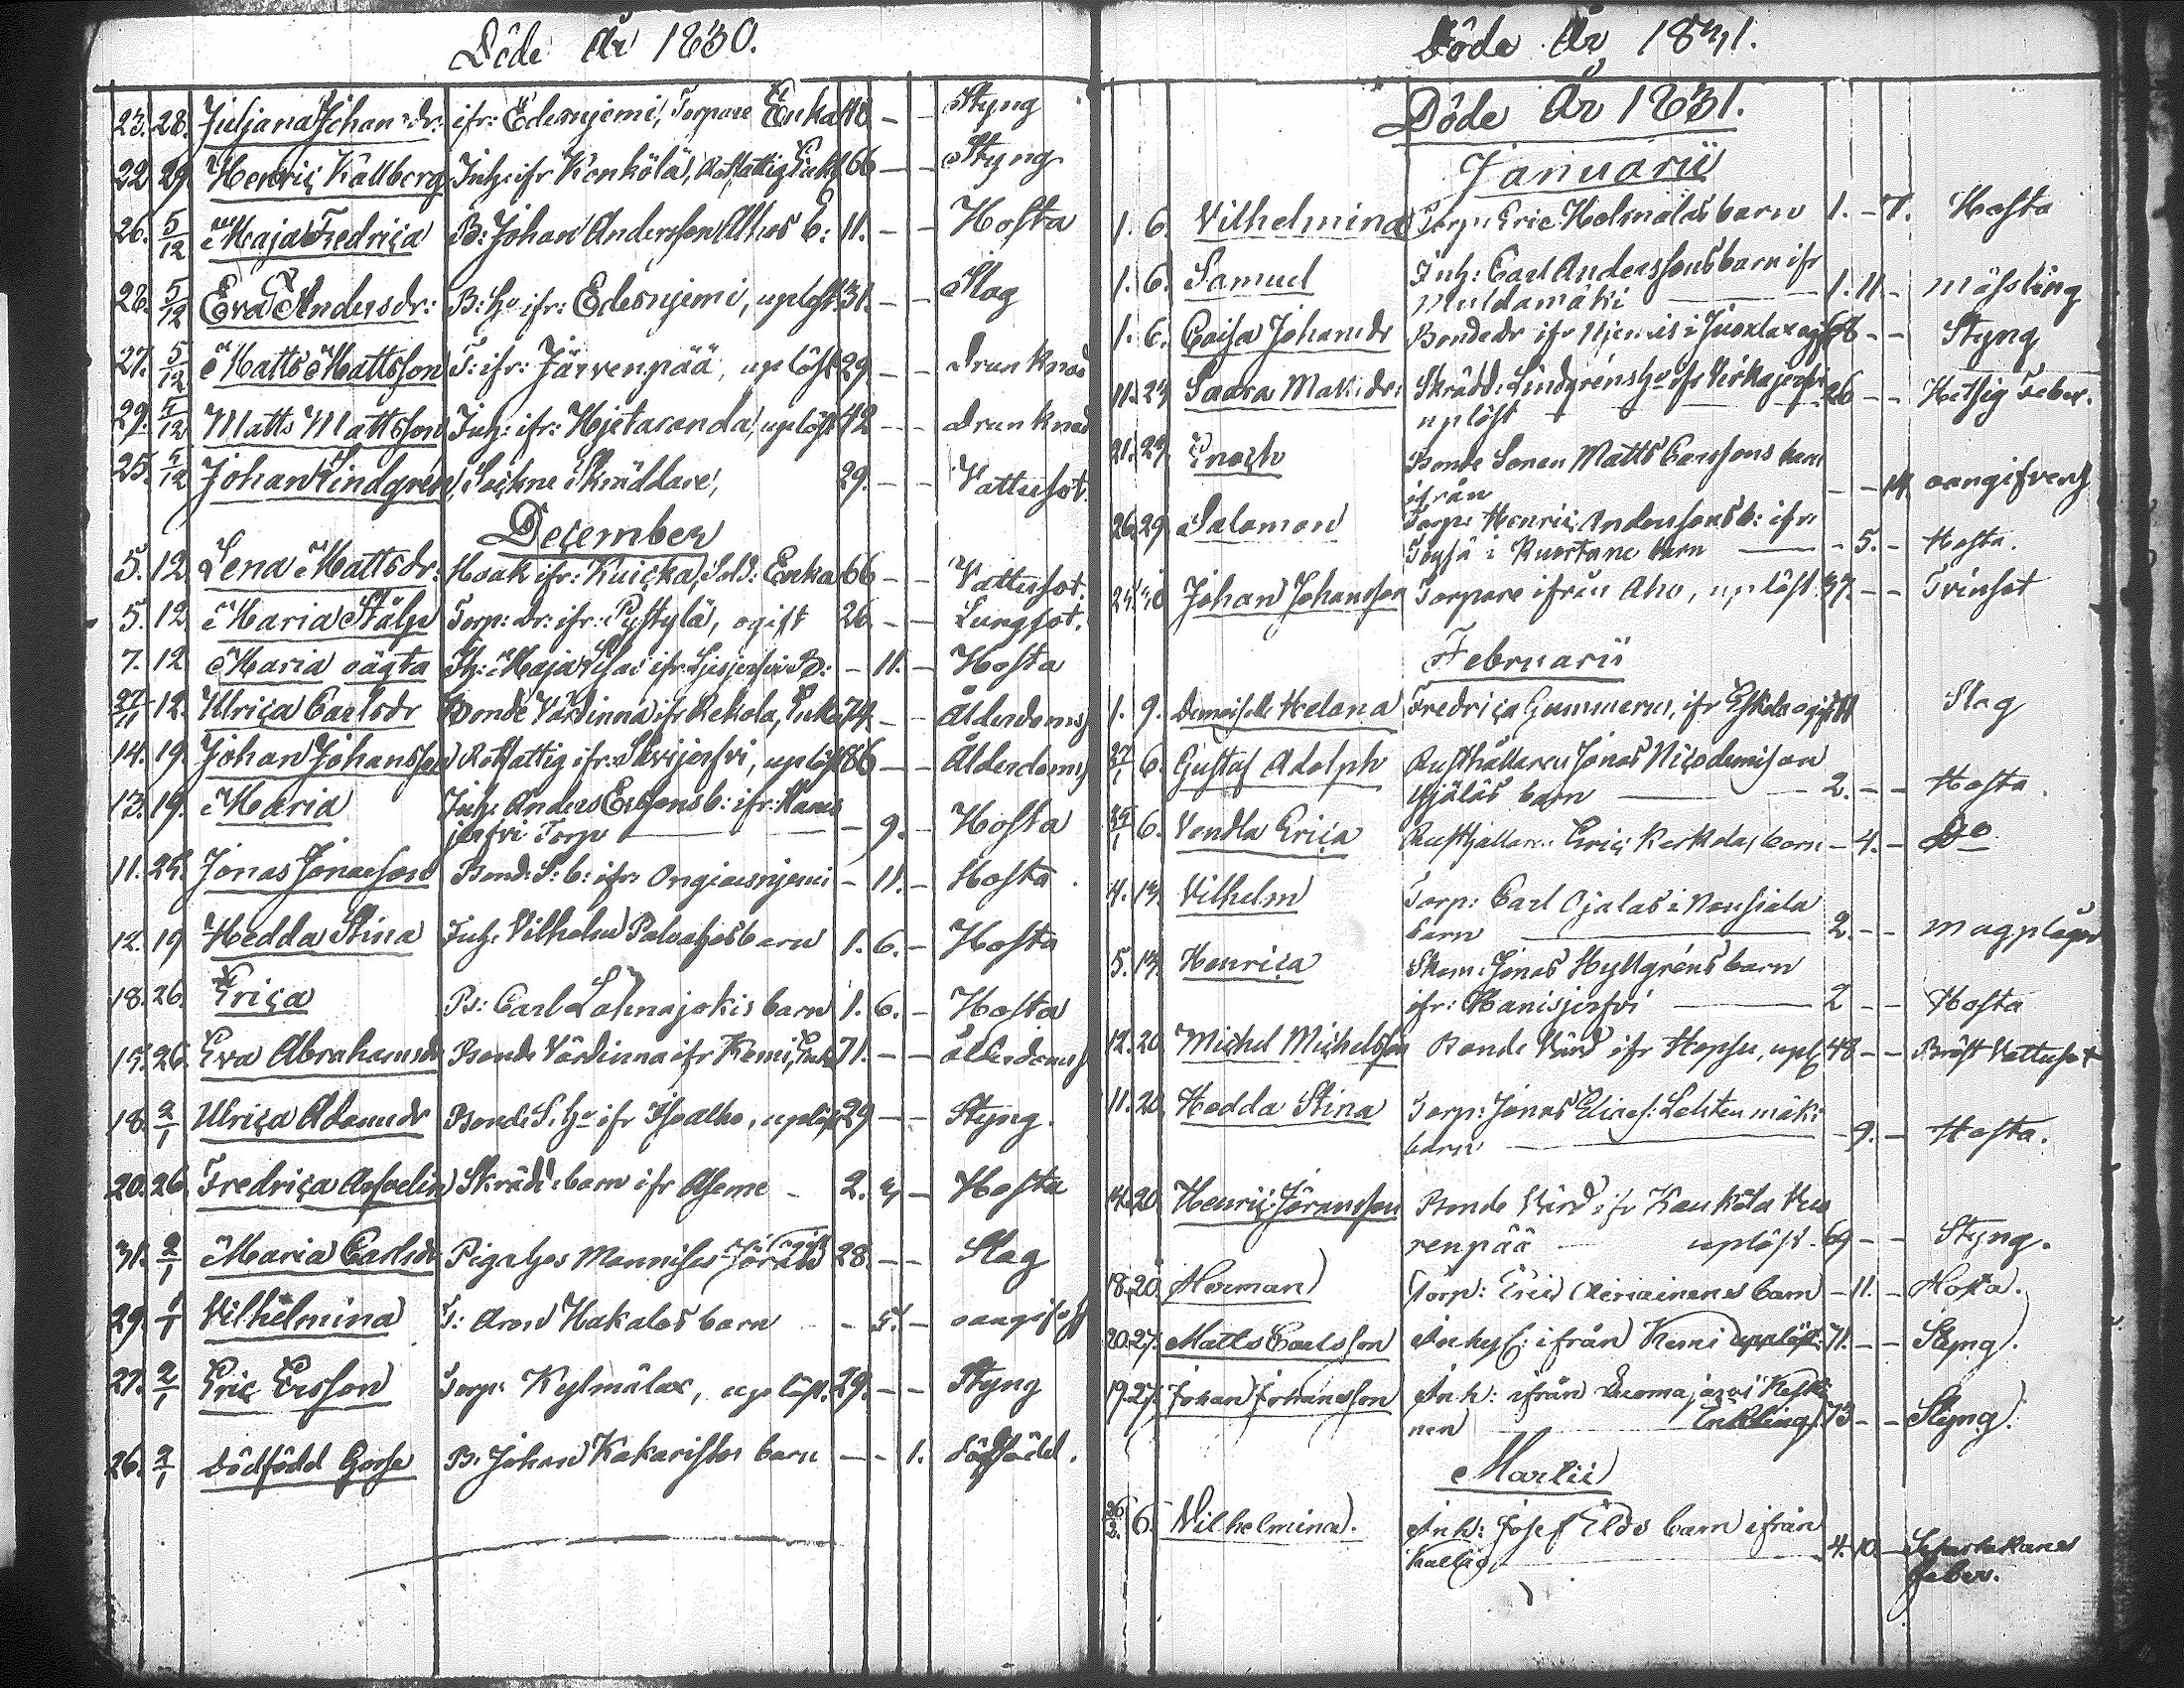 Döde År 1830.
23. 28. Juljana Johansdr: ifr: Edesnjemi, Torpare Enka 48 - - Styng
22. 29. Henriç Kallberg Inh: ifr Konkölä, Rotfattig Enkl 66 - - Styng
26. 5/12 Maja Fredriça B: Johan Andersson Alhos b: 11. - - Hosta
28. 5/12 Eva Andersdr: B: Hu ifr: Edesnjemi, uplöst. 31. - - Slag
27. 5/12 Matts Mattsson T: ifr: Järvenpää, uplöst 29 - - drunknad
29. 5/12 Matts Mattsson Inh: ifr: Hjetaranda, uplöst 42 - - drunknad
25. 5/12 Johan Lindgrén, Sockne Skräddare, 29. - - Vattusot.
December
5. 12. Lena Mattsdr: ifr: Kuiçka, Sold: Enka 66 - - Vattusot.
5. 12. Maria Stålpe Torp: dr: ifr: Pystylä, ogift 26. - - Lungsot.
7. 12. Maria oägta - 11. - Hosta
27/11 12. Ulriça Carlsdr Bonde Värdinna ifr Rekola, Enka 74. - - Ålderdoms
14. 19. Johan Johansson Rotfattig ifr: Savijerfvi, uplöst 86 - - Ålderdoms
13. 19. Maria Inh: Anders Ersons b: ifr:
jerfvi Torp - 9. - Hosta
11. 25. Jonas Jonasson Bond: S: b: ifr: - 11. - Hosta
12. 19 Hedda Stina Inh: Vilhelm barn 1. 6. - Hosta
18. 26. Eriça B: Carl Lahnajokis barn 1. 6. - Hosta
15. 26. Eva Abrahamsdr Bonde Värdinna ifr Kemi, Enka 71. - - ålderdoms
18. 2/1 Ulriça Adamsdr Bonde S. Hu ifr Isoalho, uplöst 29 - - Styng.
20. 26. Fredriça Asp Skrädd: barn ifr Aseme - 2. - Hosta
31. 2/1 Maria Carlsdr Piga hos 28. - - Slag
29. 1/1 Vilhelmina T: Aron Hakalas barn - 5. - oangifvet
27. 2/1 Eriç Ersson Torp: Kylmälax, uplöst. 29. - - Styng
26. 2/1 Dödfödd Gosse B. Johan barn - - 1. dödfödd.
Döde År 1831.
Döde År 1831.
Januarii
1. 6. Vilhelmina Torp: Eric Holmälas barn 1. - 7. Hosta
1. 6. Samuel Inh: Carl Anderssons barn ifr
Muldamäki 1. 11 - mässling
1. 6. Caisa Johansdr Bondedr ifr Njemis i - - Styng
11. 23 Saara Mattsdr: Skrädd: Lindgréns Hu ifr
uplöst 26 - - Hetsig Feber.
21. 23. Enoch Bonde Sonen Matts Carssons barn
ifrån - - 14. oangifven
26. 29. Salomon Torp: Henriç Anderssons b: ifr:
Töysä i Kuortane barn - 5. - Hosta.
Johan Johansson Torpare ifrån Aho, uplöst 37. - - Tvinsot
Februarii
1. 9. Demoiselle Helena Fredriça Gummerus, ifr Eskola ogift Slag
27/1 6. Gustaf Adolph Rusthållaren Jonas Niçodemison
barn 2. - - Hosta.
25/1 6. Vendla Eriça Rusthållaren Eriç Kerkolas barn - 4. - Do
4. 13. Vilhelm Torp: Carl Ojalas i
barn 2. - - magplågor
5. 13. Henriça Skom: Jonas Hyllgréns barn
ifr: Hanisjerfvi 2 - - Hosta
12. 20. Michel Michelsson Bonde Värd ifr Hopsu, upl. 48 - - Bröst Vattusot
11. 20. Hedda Stina Torp: Jonas Elias: Lehtenmäki
barn - 9. - Hosta.
14. 20. Henriç Jöransson Bonde Värd ifr Kauköla
renpää uplöst. 69 - - Styng.
18. 20. Herman Torp: Eric barn - 11. - Hosta.
20. 27. Matts Carlsson Inhys: ifrån Kemi upplöst. 71. - - Styng.
19. 27. Johan Johansson Inh: ifrån Luomajärvi
nen Enkling. 73 - - Styng.
Martii
26/2. 6. Vilhelmina. Inh: Josef barn ifrån
4. 10. -
feber.